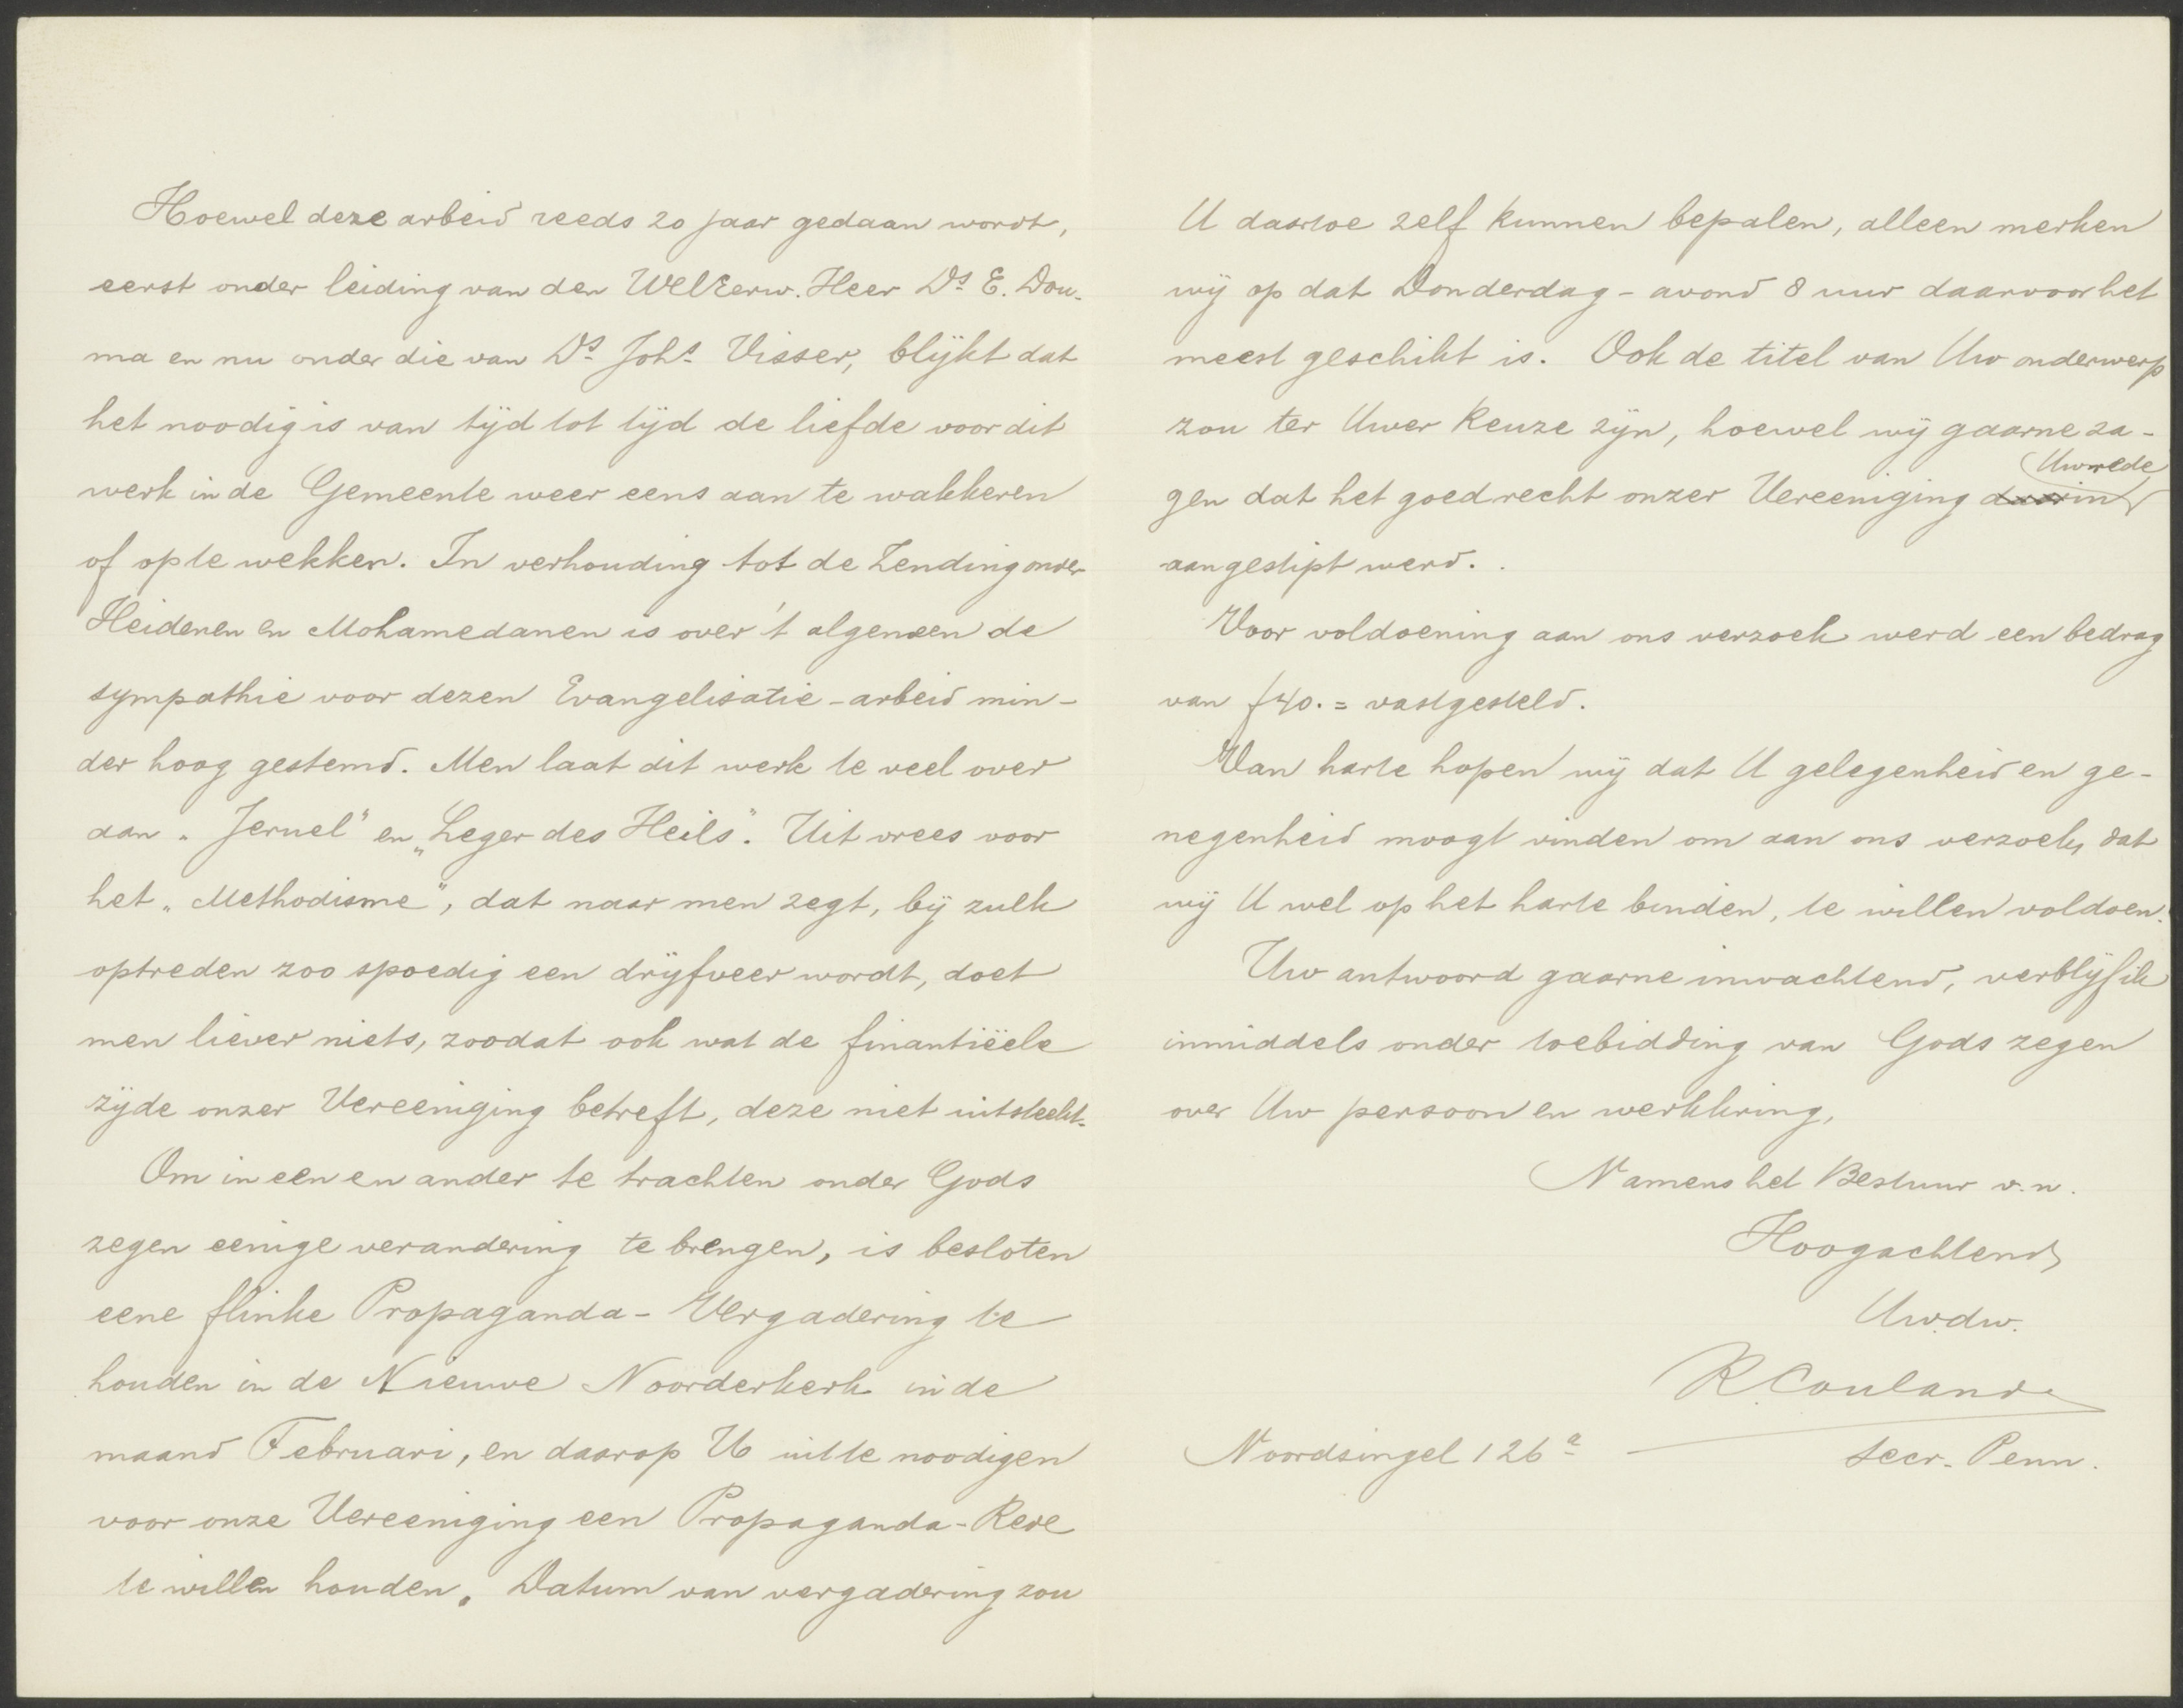 Hoewel deze arbeid reeds 20 jaar gedaan wordt,
eerst onder leiding van den WelEerw. Heer Ds. E. Dou-
ma en nu onder die van Ds. Johs. Visser, blijkt dat
het noodig is van tijd tot tijd de liefde voor dit
werk in de Gemeente weer eens aan te wakkeren
of op te wekken. In verhouding tot de Zending onder
Heidenen en Mohamedanen is over 't algemeen de
sympathie voor dezen Evangelisatie-arbeid min-
der hoog gestemd. Men laat dit werk te veel over
aan „Jeruel" en „Leger des Heils". Uit vrees voor
het „Methodisme", dat naar men zegt, bij zulk
optreden zoo spoedig een drijfveer wordt, doet
men liever niets, zoodat ook wat de finantiëele
zijde onzer Vereeniging betreft, deze niet uitsteekt.
Om in een en ander te trachten onder Gods
zegen eenige verandering te brengen, is besloten
eene flinke Propaganda-Vergadering te
houden in de Nieuwe Noorderkerk in de
maand Februari, en daarop U uit te noodigen
voor onze Vereeniging een Propaganda-Rede
te willen houden. Datum van vergadering zou
U daartoe zelf kunnen bepalen, alleen merken
wij op dat Donderdag-avond 8 uur daarvoor het
meest geschikt is. Ook de titel van Uw onderwerp
zou ter Uwer keuze zijn, hoewel wij gaarne za-
gen dat het goed recht onzer Vereeniging daarin Uw rede
aangestipt werd.
Voor voldoening aan ons verzoek werd een bedrag
van f40.= vastgesteld.
Van harte hopen wij dat U gelegenheid en ge-
negenheid moogt vinden om aan ons verzoek, dat
wij U wel op het harte binden, te willen voldoen.
Uw antwoord gaarne inwachtend, verblijf ik
inmiddels onder toebidding van Gods zegen
over Uw persoon en werkkring,
Namens het Bestuur v.n.
Hoogachtend
Uw.dw.
R. Couland
Noordsingel 126a
Secr. Penn.